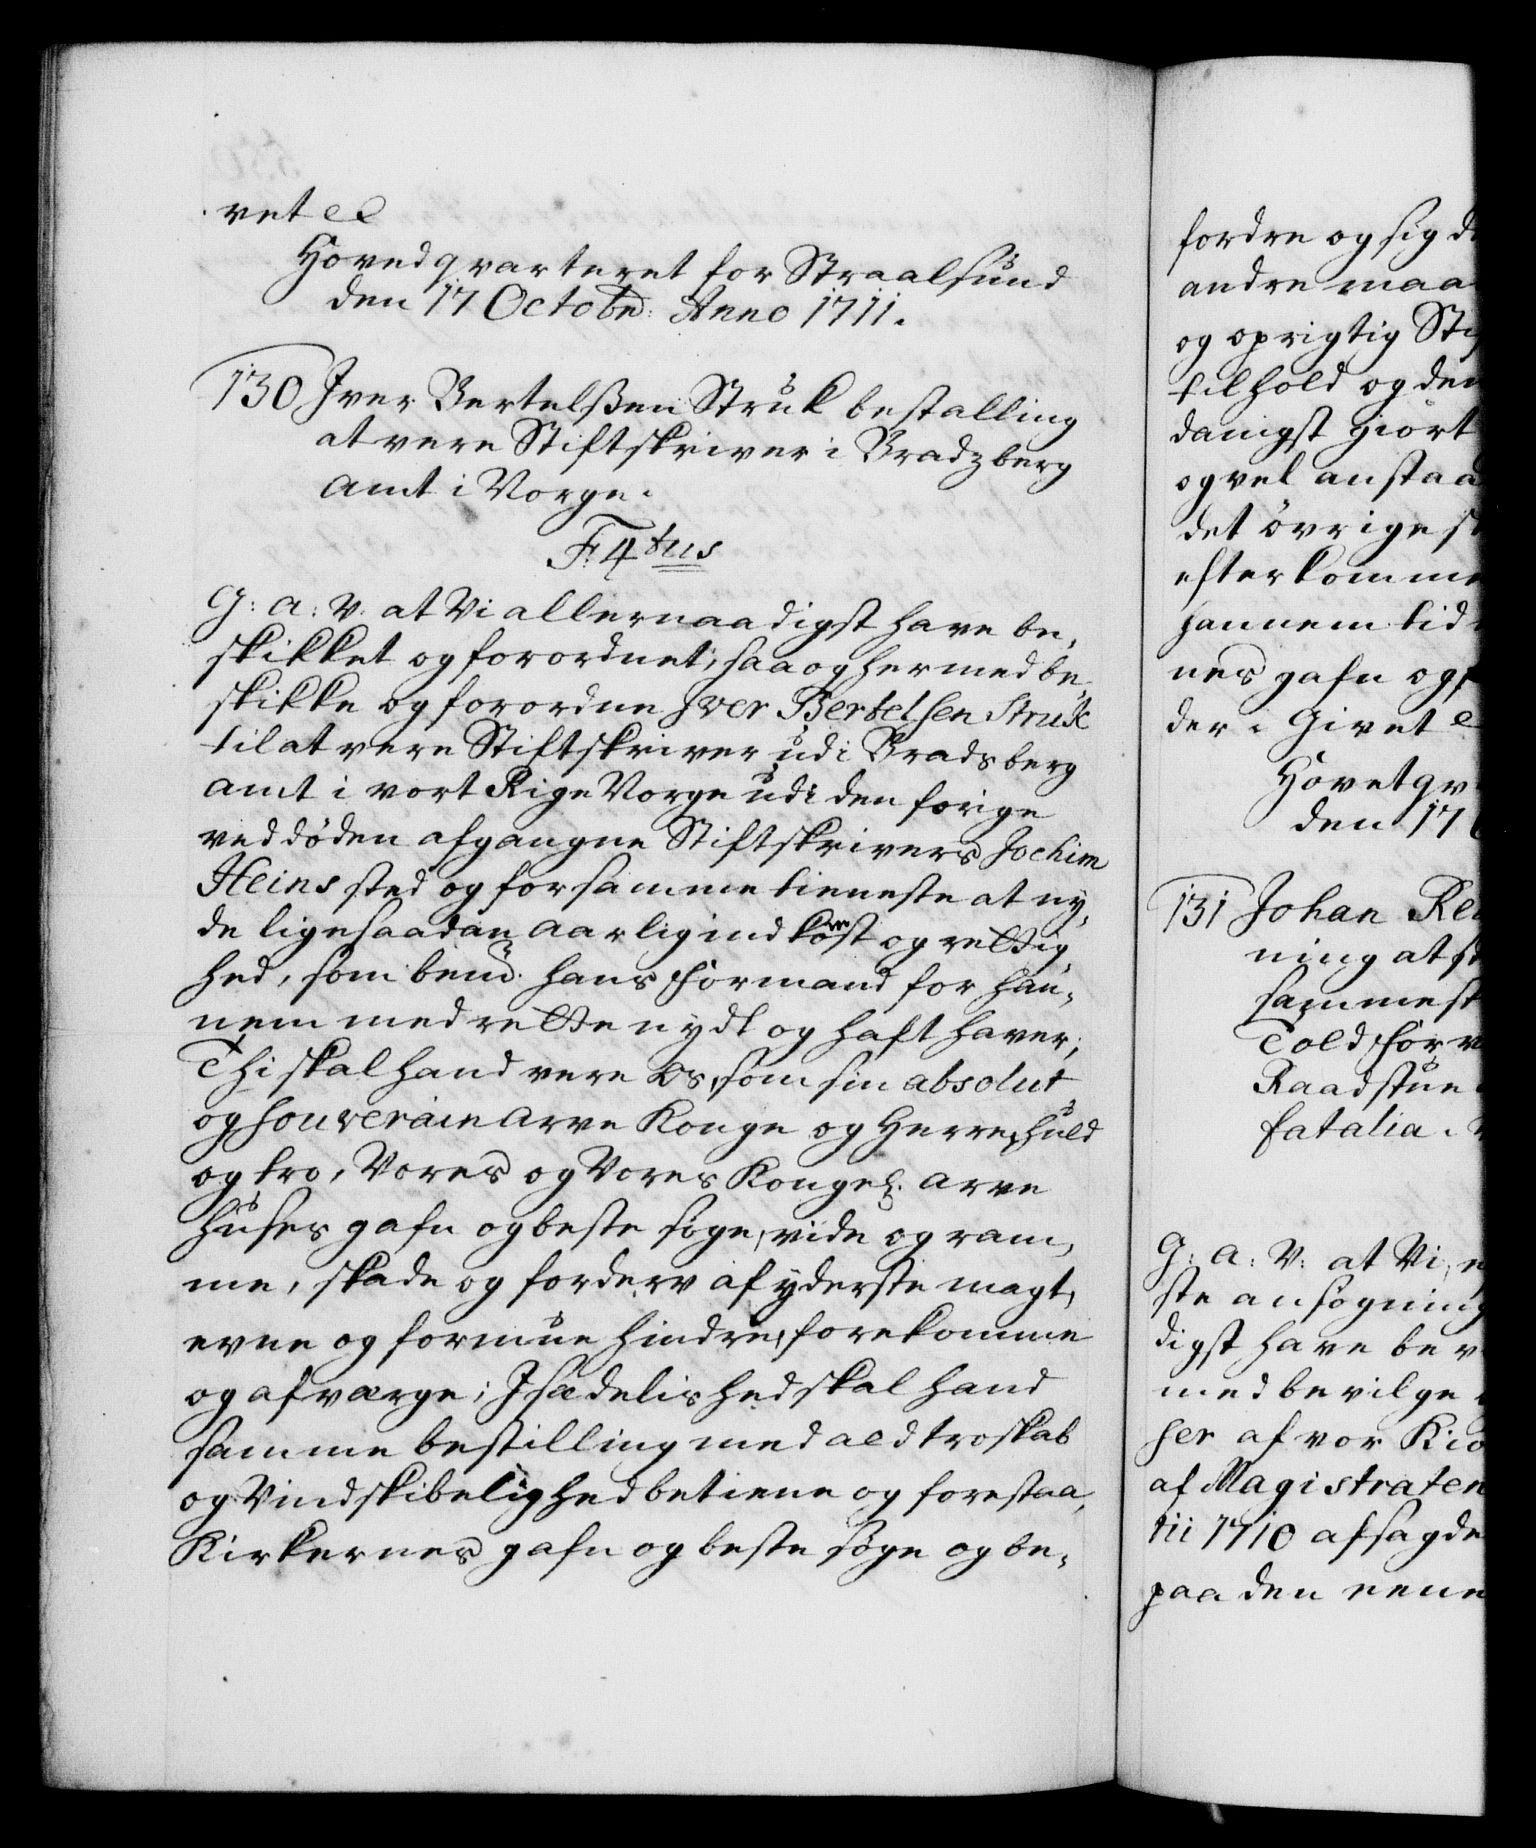 vet etc
Hovedqvarteret for Straalsund
den 17 Octobr: Anno 1711.
130 Iver Bertelßen Struk bestalling
at vere Stiftskriver i Bradzberg
amt i Norge.
F: 4tus
G: A: V: at Vi allernaadigst have be,
skikket og forordnet, saa og hermed be
skikke og forordne Iver Bertelsen Struk
til at vere Stiftskriver udi Bradsberg
amt i vort Rige Norge udi den forige
ved döden afgangne Stiftskrivers Jochim
Heins sted og for samme tieneste at ny,
de lige saadan aarlig indkomst og rettig,
hed, som bemte. hans Formand for han,
nem med rette nydt og haft haver;
Thi skal hand vere Os, som sin absolut
og souverain Arve Konge og Herre, huld
og tro, Vores og Vores Kongel. Arve
Huses gafn og beste söge, vide og ram,
me, skade og forderv af yderste magt,
evne og formue hindre, forekomme
og afværge; Isædelished skal hand
samme bestilling med ald troskab
og Vindskibelighed betiene og forestaa,
Kirkernes gafn og beste söge og be,
fordre og sig d
andre maa
og oprigtig Sti
tilhold og den
danigst giört
og vel anstaa
det övrige s
efterkomme
hannem tid
nes gafn og
der. Givet
Hovetqv
den 17
131 Johan Re
ning at
samme st
Told For
Raadstue
fatalia.
G: A: V: at Vi, e
ste ansögning
digst have bev
med bevilge
ser af vor Kiö
af Magistraten
tii 1710 afsagde
paa den eene